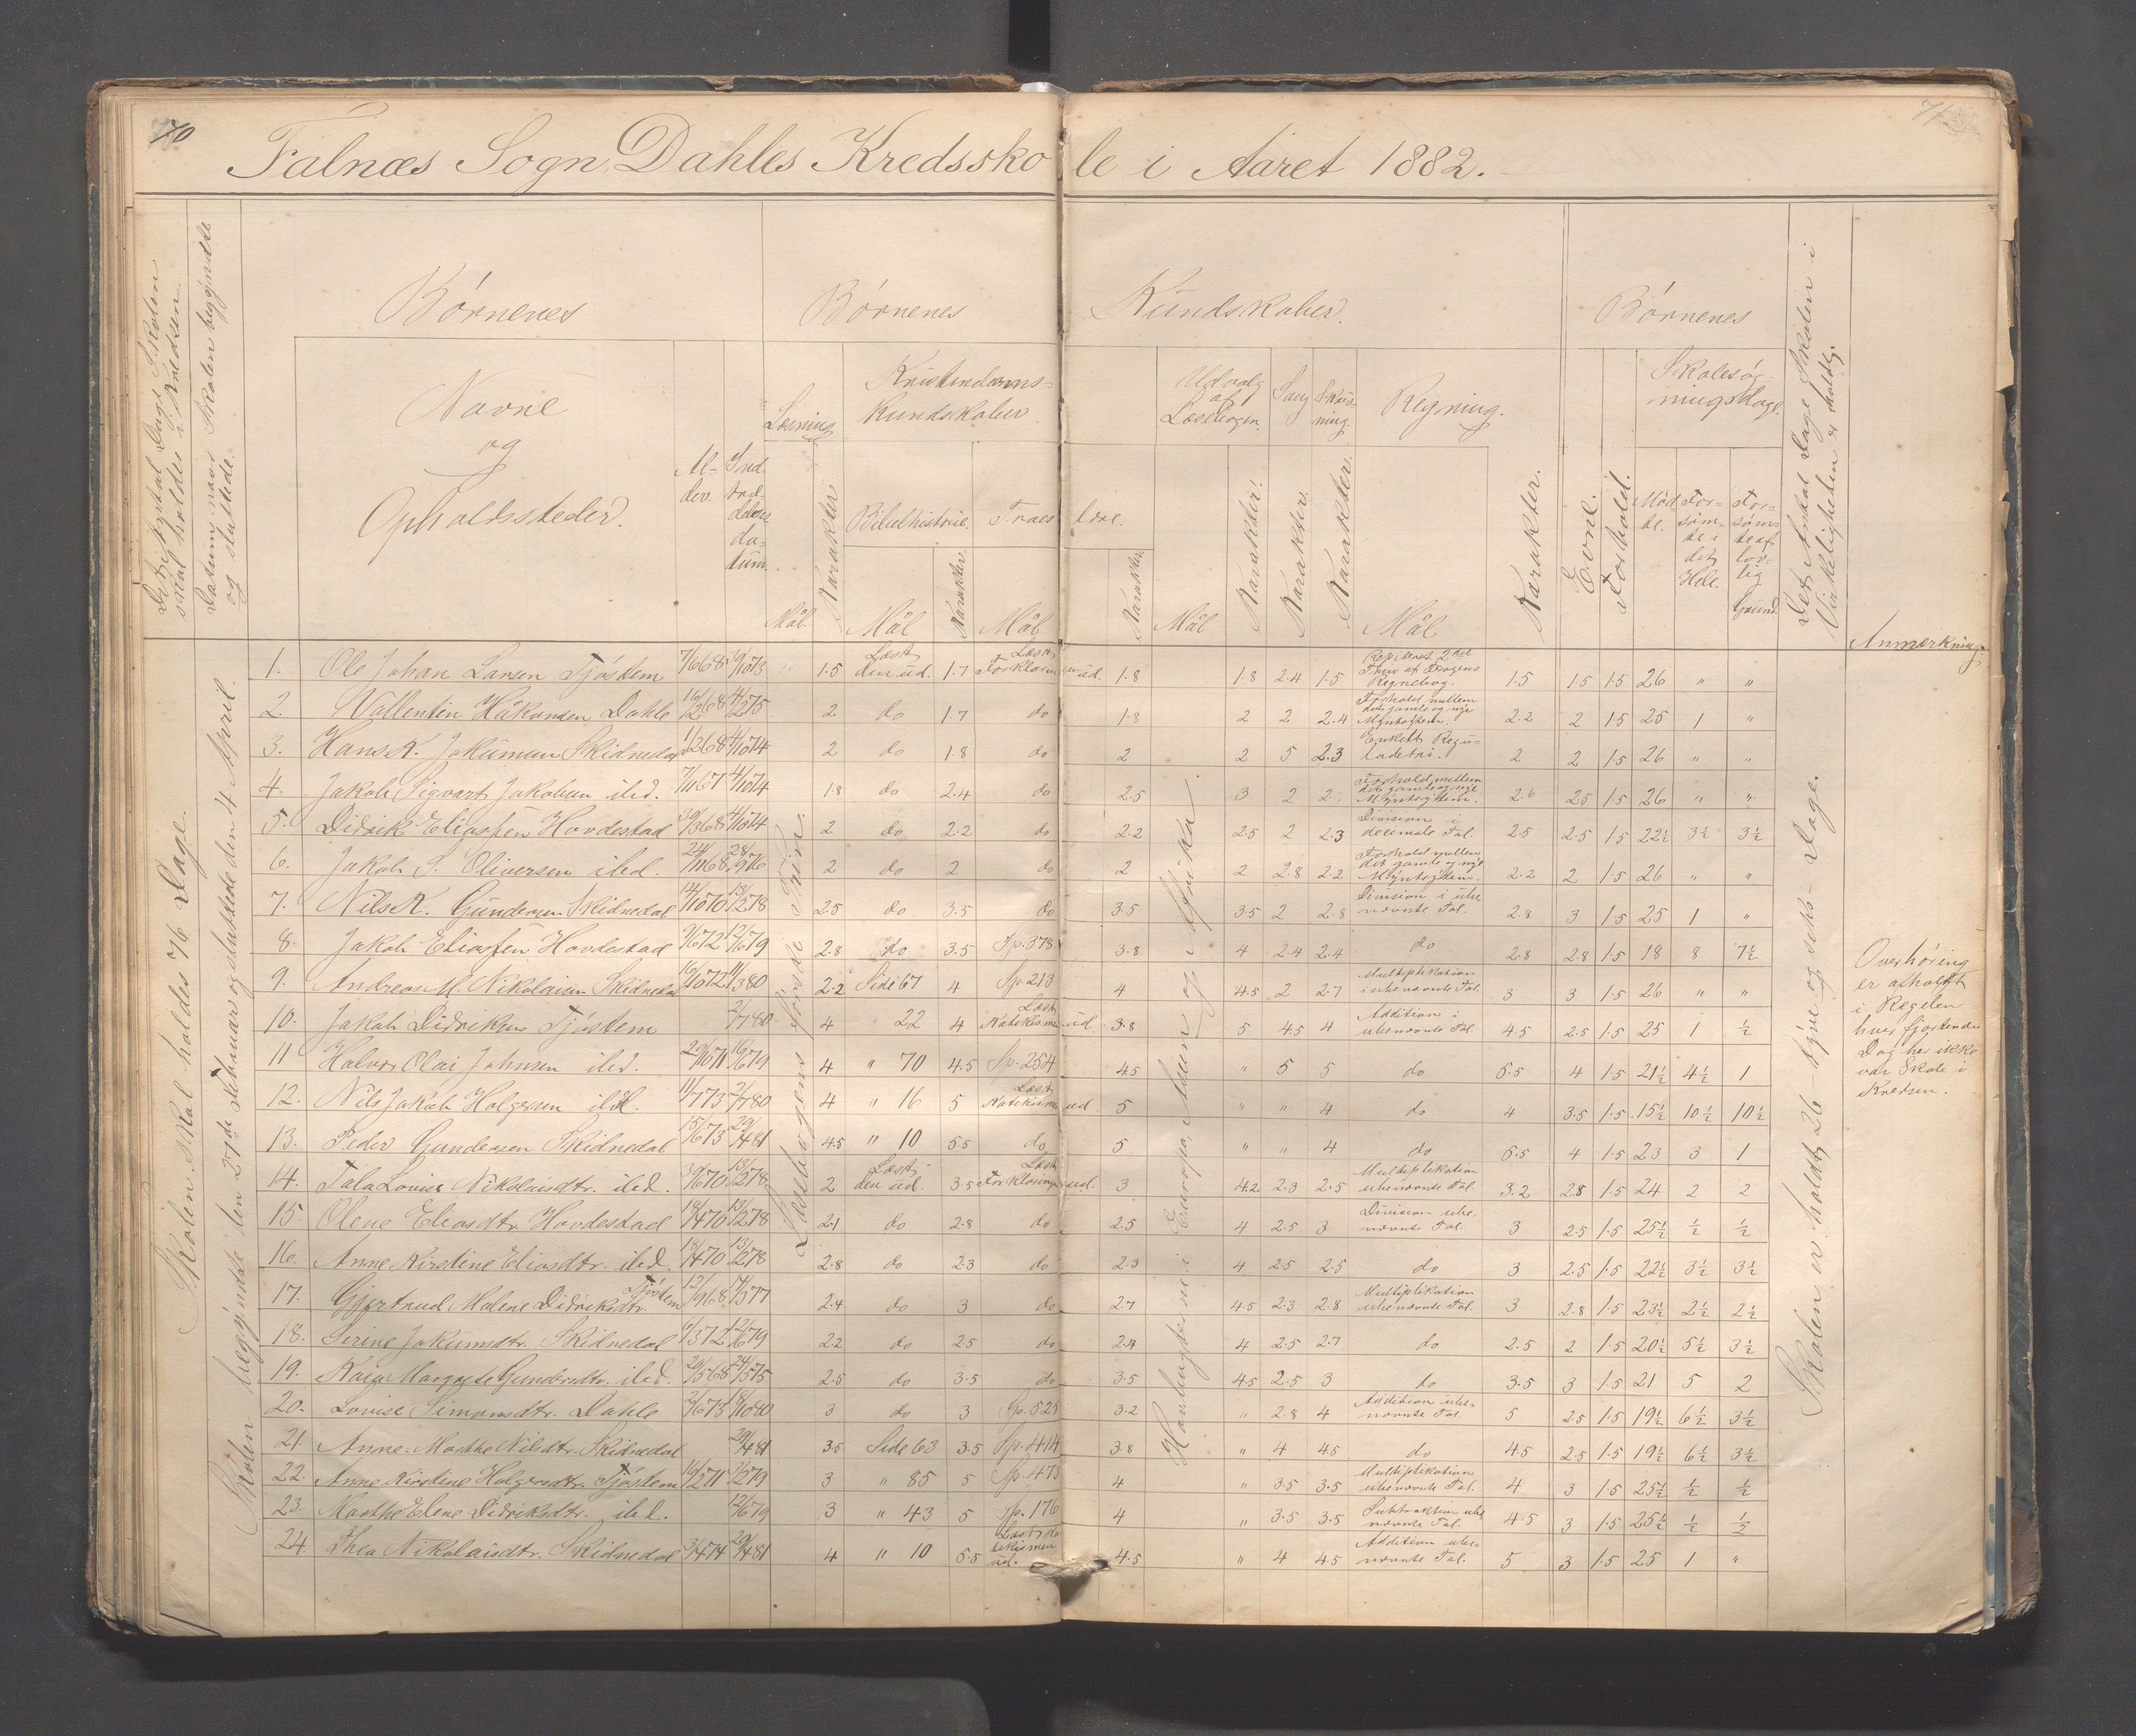 70
71
Falnæs Sogn, Dahles Kredsskole i Aaret 1882.
Det Antal Dage Skolen skal holdes i Kredsen.
Datum naar Skolen begyndte og sluttede.
Børnenes
Børnenes Kundskaber.
Børnenes
Det Antal Dage Skolen i Virkeligheden er holdt.
Anmærkning.
Navne og Opholdssteder.
Alder.
Indtrædelsesdatum.
Læsning
Kristendomskundskaber
Udvalg af Læsebogen.
Sang
Skrivning.
Regning.
Evne.
Forhold.
Skolesøgningsdage.
Mål. Karakter.
Bibelhistorie. Mål Karakter.
Troeslære. Mål Karakter.
Mål Karakter.
Karakter.
Karakter.
Mål Karakter.
Mødte.
Forsømte i det Hele.
Forsømte af lovlig Grund.
Skolen skal holdes 76 Dage.
Skolen begyndte den 27de Februar og sluttede den 4 April.
Læsebogens fjerde Trin.
Hovedbugterne i Europa, Asien og Afrika.
Skolen er holdt 26 - tyve og seks - Dage.
1. Ole Johan Larsen Tjøstem 7/6 68 1.5 Læst den ud. 1.7 Læst Forklaringen ud. 1.8 1.8 2.4 1.5 Repiteret 2det Trin af Tragens Regnebog. 1.5 1.5 1.5 26 " "
2. Vallentin Håkonsen Dahle 16/2 68 4/2 75 2 do 1.7 do 1.8 2 2 2.4 Forhold mellem det gamle og nye Myntsystem. 2.2 2 1.5 25 1 "
3. Hans K. Jakumsen Skidnedal 1/2 68 4/10 74 2 do 1.8 do 2 2 5 2.3 Enkelt Reguladetri. 2 2 1.5 26 " "
4. Jakob Sigvart Jakobsen ibd. 7/11 67 4/10 74 1.8 do 2.4 do 2.5 3 2 2 Forhold mellem det gamle og nye Myntsystem. 2.6 2.5 1.5 26 " "
5. Didrik Eliassen Hovdestad 30/3 68 4/10 74 2 do 2.2 do 2.2 2.5 2 2.3 Division i decimale Tal. 2.5 2.5 1.5 22½ 3½ 3½
6. Jakob S. Oliversen ibd. 24/11 68 28/9 76 2 do 2 do 2 2 2.8 2.2 Forhold mellem det gamle og nye Myntsystem. 2.2 2 1.5 26 " "
7. Nils K. Gundersen Skidnedal 14/10 70 13/2 78 2.5 do 3.5 do 3.5 3.5 2 2.8 Division i ubenævnte Tal. 2.8 3 1.5 25 1 "
8. Jakob Eliassen Hovdestad 9/6 72 12/6 79 2.8 do 3.5 Sp. 378 3.8 4 2.4 2.4 do 2.8 2.8 1.5 18 8 7½
9. Andreas M. Nikolaisen Skidnedal 16/10 72 11/3 80 2.2 Side 67 4 Sp. 213 4 4.5 2 2.7 Multiplikation i ubenævnte Tal. 3 3 1.5 26 " "
10. Jakob Didriksen Tjøstem 2/7 80 4 " 22 4 Læst Katekismen ud. 3.8 5 4.5 4 Addition i ubenævnte Tal. 4.5 2.5 1.5 25 1 ½
11 Halvor Olai Johnsen ibd. 29/10 71 16/6 79 4 " 70 4.5 Sp. 254 4.5 " 5 5 do 5.5 4 1.5 21½ 4½ 1
12. Nils Jakob Holgersen ibd. 11/7 73 2/7 80 4 " 16 5 Læst Katekismen ud. 5 " " 4 do 4 3.5 1.5 15½ 10½ 10½
13. Peder Gundersen Skidnedal 15/6 73 29/4 81 4.5 " 10 5.5 do 5 " " 4 do 5.5 4 1.5 23 3 1
14. Tala Lovise Nikolaisdtr. ibd. 30/6 70 13/2 78 2 Læst den ud. 3.5 Læst Forklaringen ud. 3 4.2 2.3 2.5 Multiplikation ubenævnte Tal. 3.2 2.8 1.5 24 2 2
15. Olene Eliasdtr. Hovdestad 18/4 70 13/2 78 2.1 do 2.8 do 2.5 4 2.5 3 Division ubenævnte Tal. 3 2.5 1.5 25½ ½ ½
16. Anne Kirstine Eliasdtr. ibd. 18/4 70 13/2 78 2.8 do 2.3 do 2.3 4 2.5 2.5 do 3 2.5 1.5 22½ 3½ 3½
17. Gjertrud Malene Didriksdtr. Tjøstem 12/9 68 14/3 77 2.4 do 3 do 2.7 4.5 2.3 2.8 Multiplikation ubenævnte Tal. 3 2.8 1.5 23½ 2½ 2½
18. Serine Jakumsdtr. Skidnedal 4/3 72 12/6 79 2.2 do 2.5 do 2.4 4 2.5 2.7 do 2.5 2 1.5 20½ 5½ 3½
19. Kaia Margrete Gundersdtr. ibd. 20/5 68 24/5 75 2.5 do 3.5 do 3.5 4.5 2.5 3 do 3.5 3 1.5 21 5 2
20. Lovise Simonsdtr. Dahle 3/6 73 18/10 80 3 do 3 Sp. 525 3.2 " 2.8 4 Addition ubenævnte Tal. 5 2.5 1.5 19½ 6½ 3½
21. Anne Marthe Nilsdtr. Skidnedal 29/4 81 3.5 Side 63 3.5 Sp. 414 3.8 " 4 4.5 do 4.5 2.5 1.5 19½ 6½ 3½
22. Anne Kirstine Holgersdtr. Tjøstem 16/5 71 3 " 85 5 Sp. 475 4 " 3.5 3.5 Multiplikation ubenævnte Tal. 4 3 1.5 25½ ½ ½
23. Marthe Elene Didriksdtr. ibd. 12/6 79 3 " 43 5 Sp. 176 4 " 3.5 3.5 Subtraktion ubenævnte Tal. 4.5 3 1.5 25½ ½ ½
24. Thea Nikolaisdtr. Skidnedal 3/4 74 29/4 81 4 " 10 5.5 Læst Katekismen ud. 4.5 " 4 4.5 Addition ubenævnte Tal. 5 3 1.5 25 1 "
Overhøring
er afholdt
i Regelen
hver fjortende
Dag her ikke
var Skole i
Kredsen.